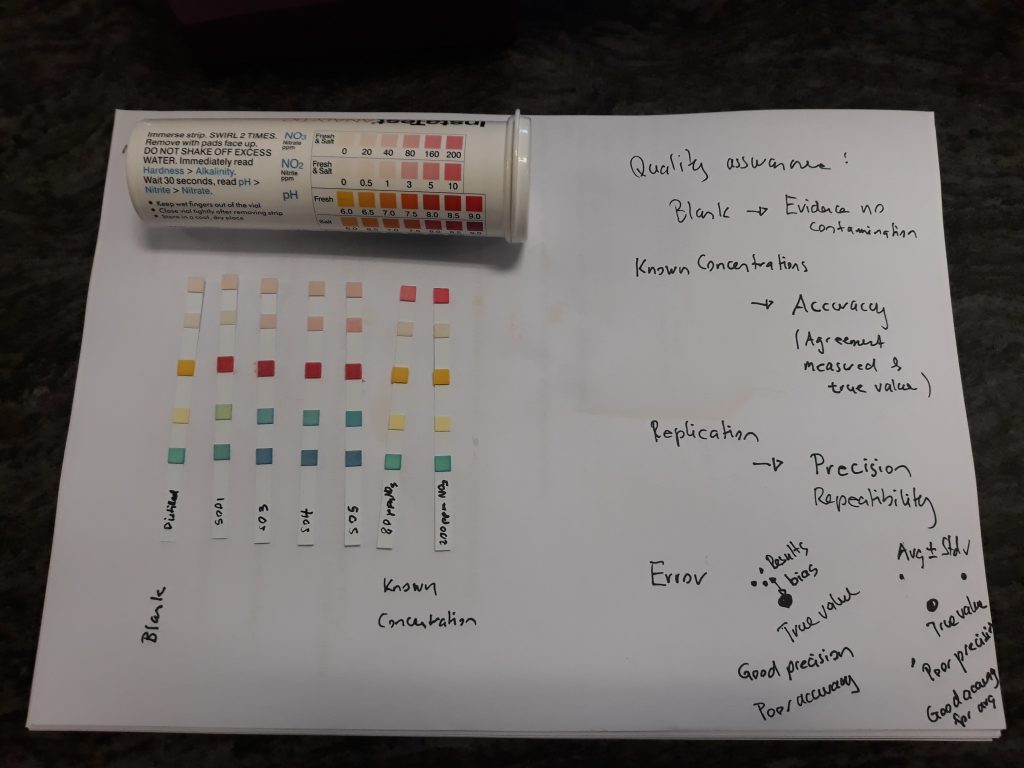 InstaTest
Immerse strip. SWIRL 2 TIMES.
Remove with pads face up.
DO NOT SHAKE OFF EXCESS
WATER. Immediately read
Hardness > Alkalinity.
Wait 30 seconds, read pH >
Nitrite > Nitrate.
• Keep wet fingers out of the vial
• Close vial tightly after removing strip
• Store in a cool, dry place
NO3
Nitrate
ppm
Fresh
& Salt
0 20 40 80 160 200
NO2
Nitrite
ppm
Fresh
& Salt
0 0.5 1 3 5 10
pH
Fresh
6.0 6.5 7.0 7.5 8.0 8.5 9.0
Salt
Distilled
SOS
80 ppm NO3
200 ppm NO3
Blank
Known
Concentration
Quality assurance:
Blank → Evidence no
contamination
Known Concentrations
→ Accuracy
(Agreement
measured &
true value)
Replication
→ Precision
Repeatibility
Error
Results
bias
True value
Good precision
Poor accuracy
Avg ± Stdv
True value
Poor precision
Good accuracy
for avg